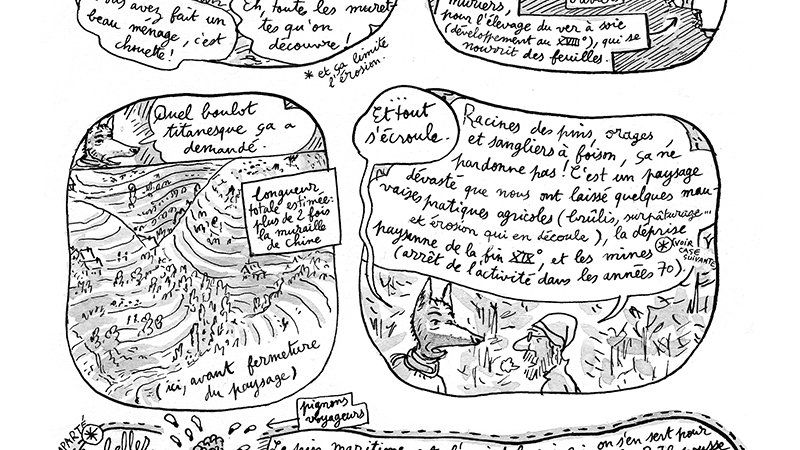 avez fait un
beau ménage, c'est
chouette!
Eh, toutes les muret-
tes qu'on
découvre!
* et ça limite
l'érosion.
mûriers,
pour l'élevage du ver à soie
(développement au XVIII°), qui se
nourrit des feuilles.
Quel boulot
titanesque ça a
demandé.
longueur
totale estimée:
plus de 2 fois
la muraille
de Chine
(ici, avant fermeture
du paysage)
...
Et tout
s'écroule.
Racines des pins, orages
et sangliers à foison, ça ne
pardonne pas! C'est un paysage
dévasté que nous ont laissé quelques mau-
vaises pratiques agricoles (brûlis, surpâturage...
et érosion qui en découle), la déprise
paysanne de la fin XIX°, et les mines *
(arrêt de l'activité dans les années 70).
(VOIR
CASE
SUIVANTE
pignons
voyageurs
*
Le pin maritime
on s'en sert pour